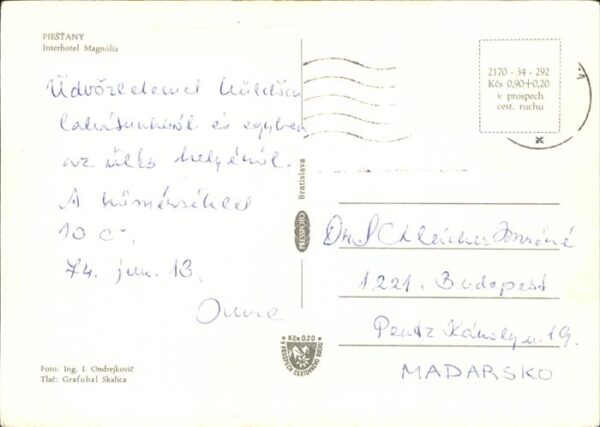 PIEŠŤANY
Interhotel Magnólia
Üdvözletemet küldöm
lakásunkról és egyben
az ülés helyéről.
A hőmérséklet
10 C°.
74. jun. 13.
2170 - 34 - 292
Kčs 0,90+0,20
v prospech
cest. ruchu
Bratislava
PRESSFOTO
Dr. Schleicher Imréné
1221. Budapest
Károly u. 19.
MAĎARSKO
Kčs 0.20
Foto: Ing. I. Ondrejkovič
Tlač: Grafobal Skalica